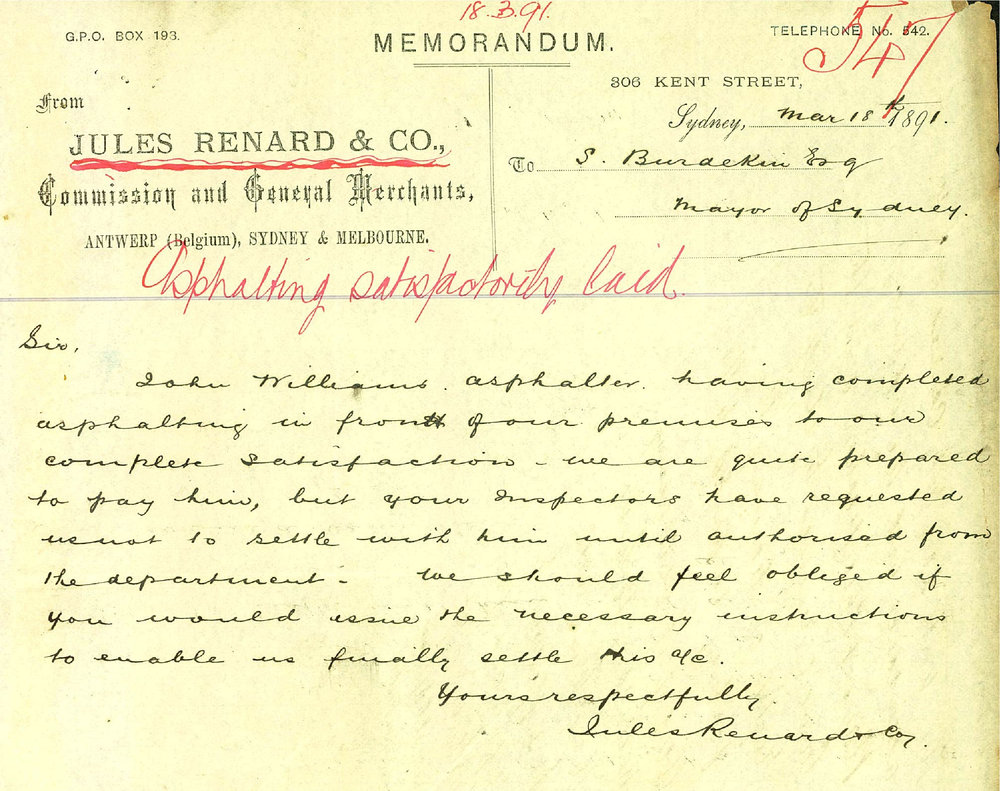 18.3.91.
G.P.O. BOX 193.
MEMORANDUM.
TELEPHONE No. 542.
547
306 KENT STREET,
From
Sydney, Mar 18th 1891.
JULES RENARD & CO.,
To S. Burdekin Esq
Commission and General Merchants,
Mayor of Sydney.
ANTWERP (Belgium), SYDNEY & MELBOURNE.
Asphalting satisfactorily laid.
Sir,
John Williams. asphalter. having completed
asphalting in front of our premises to our
complete satisfaction - we are quite prepared
to pay him, but your Inspectors have requested
us not to settle with him until authorised from
the department - We should feel obliged if
you would issue the necessary instructions
to enable us finally settle this a/c.
Yours respectfully.
Jules Renard & Coy.